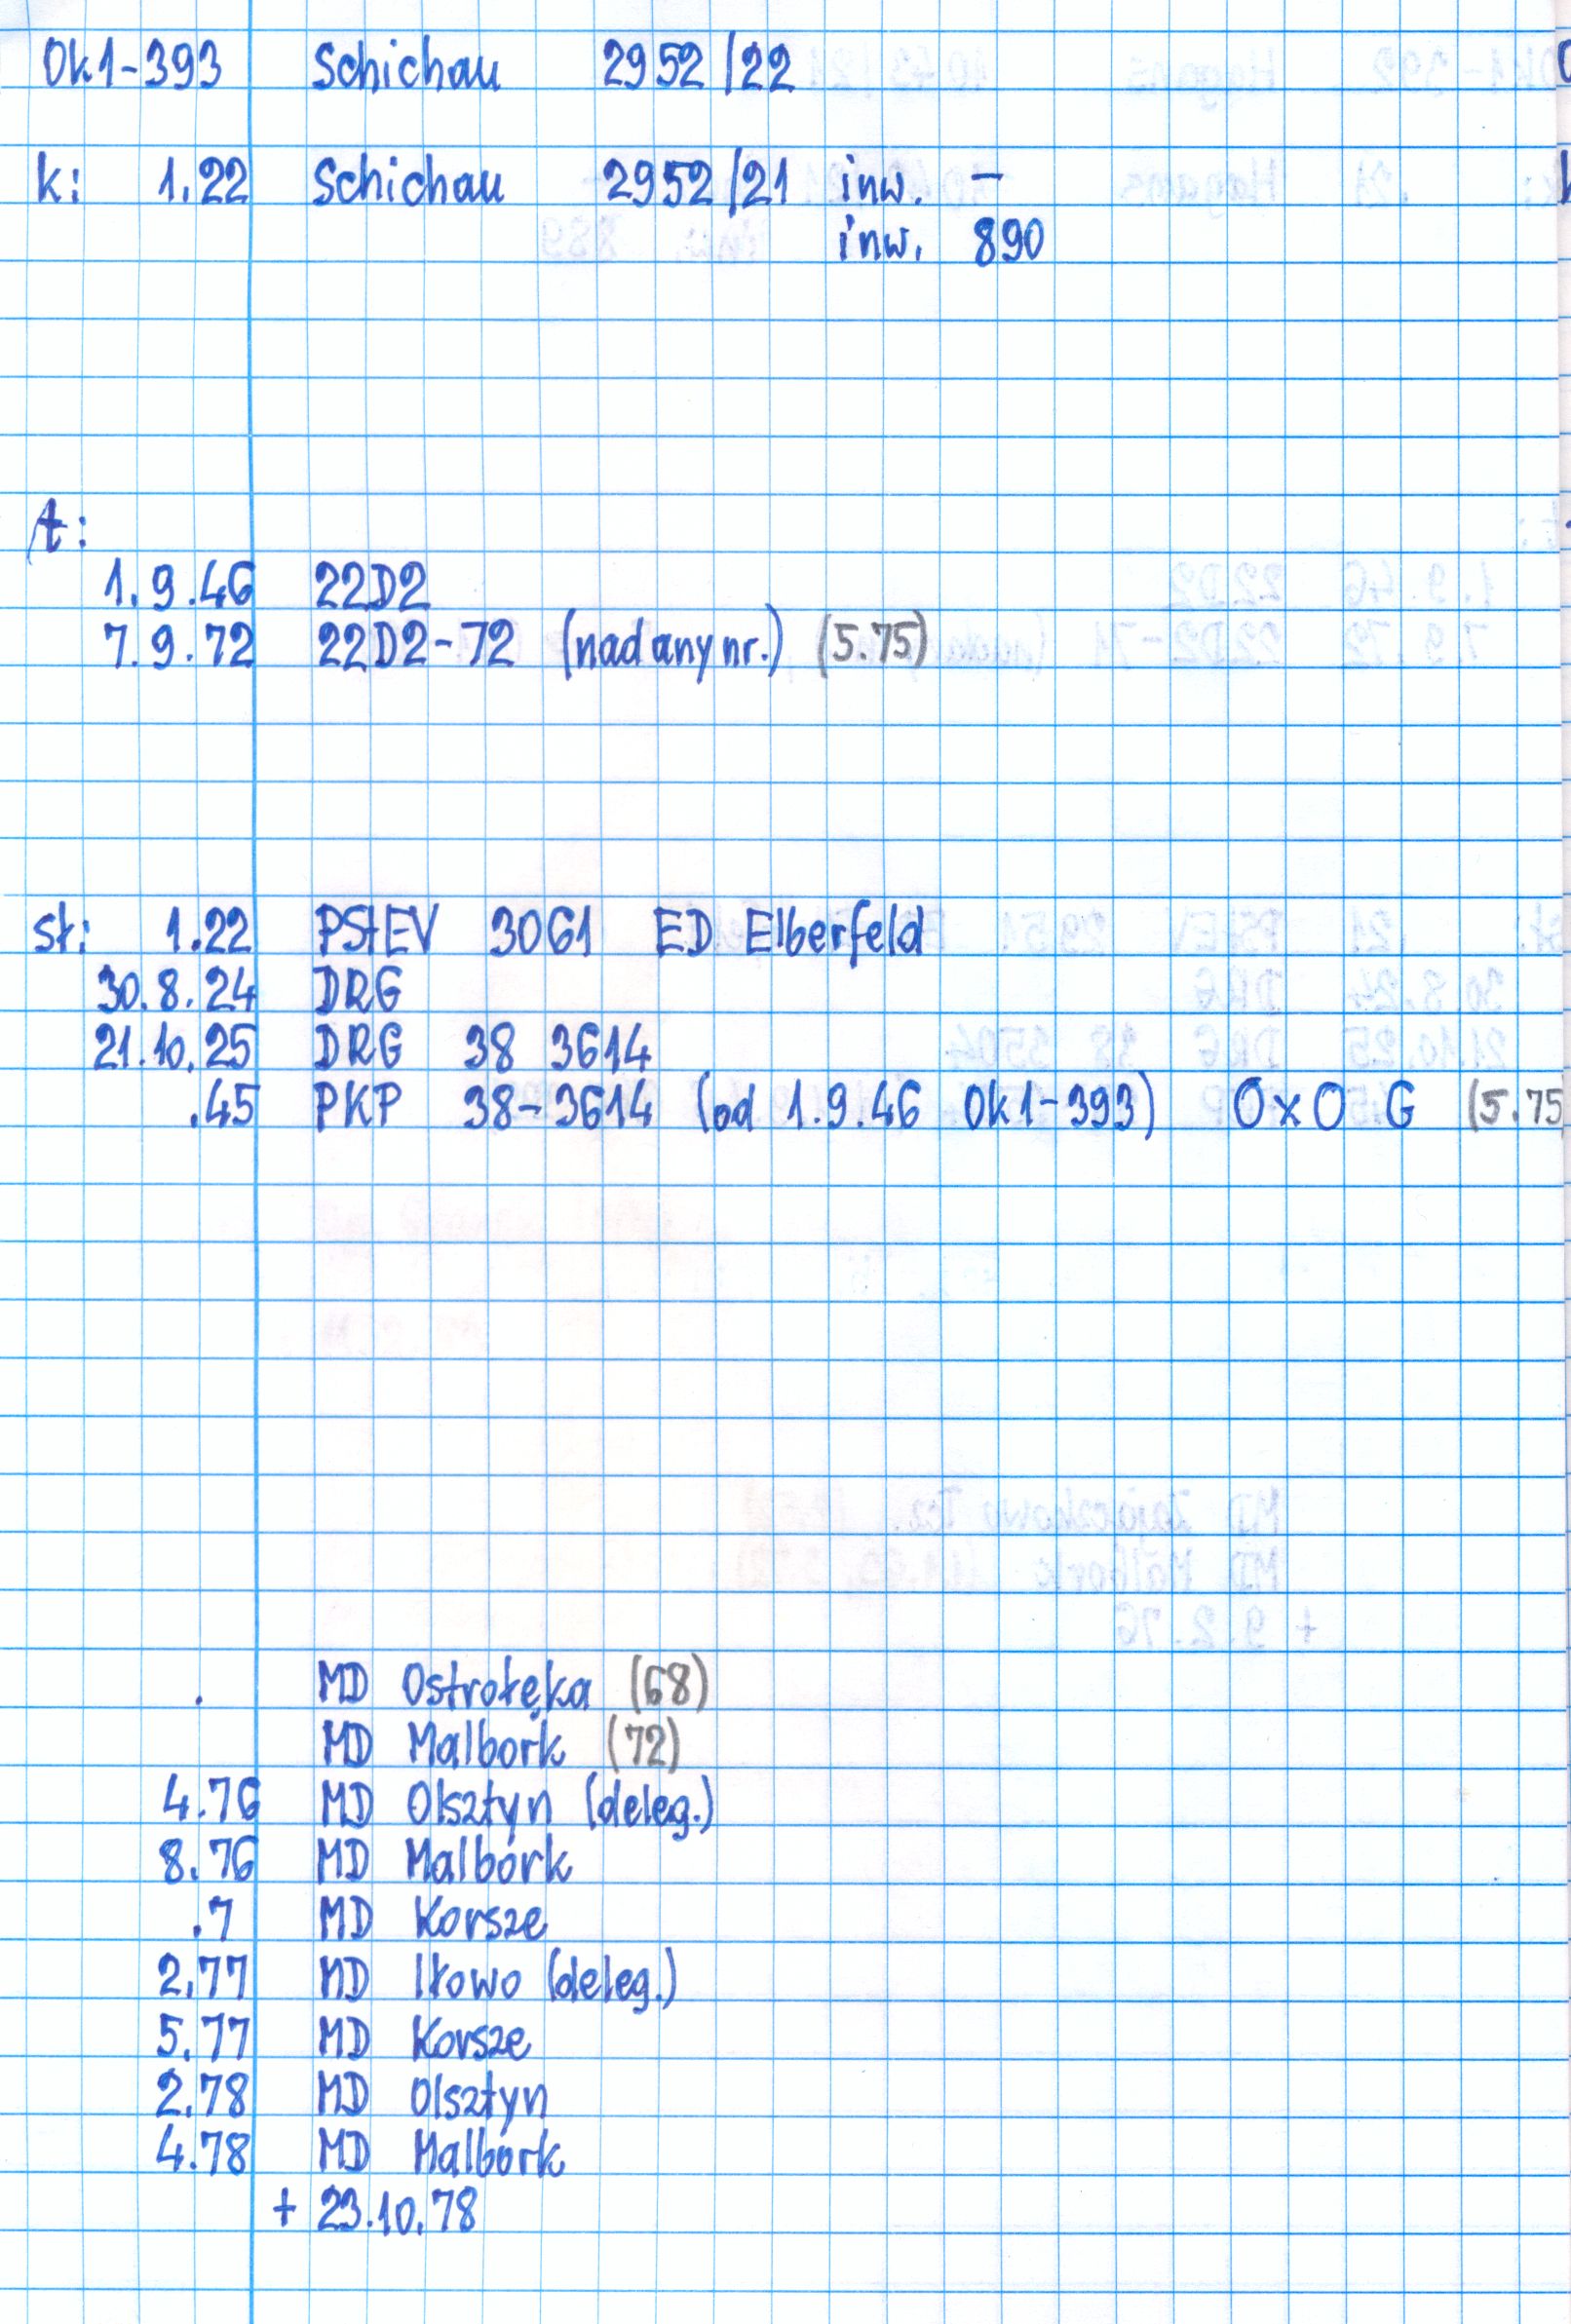 Ok1-393 Schichau 2952/22
k: 1.22 Schichau 2952/21 inw. —
inw. 890
t:
1.9.46 22D2
7.9.72 22D2-72 (nadany nr.) (5.75)
st: 1.22 PStEV 3061 ED Elberfeld
30.8.24 DRG
21.10.25 DRG 38 3614
.45 PKP 38-3614 (od 1.9.46 Ok1-393) OxO G (5.75
. MD Ostrołęka (68)
MD Malbork (72)
4.76 MD Olsztyn (deleg.)
8.76 MD Malbork
.7 MD Korsze
2.77 MD Iłowo (deleg.)
5.77 MD Korsze
2.78 MD Olsztyn
4.78 MD Malbork
+ 23.10.78